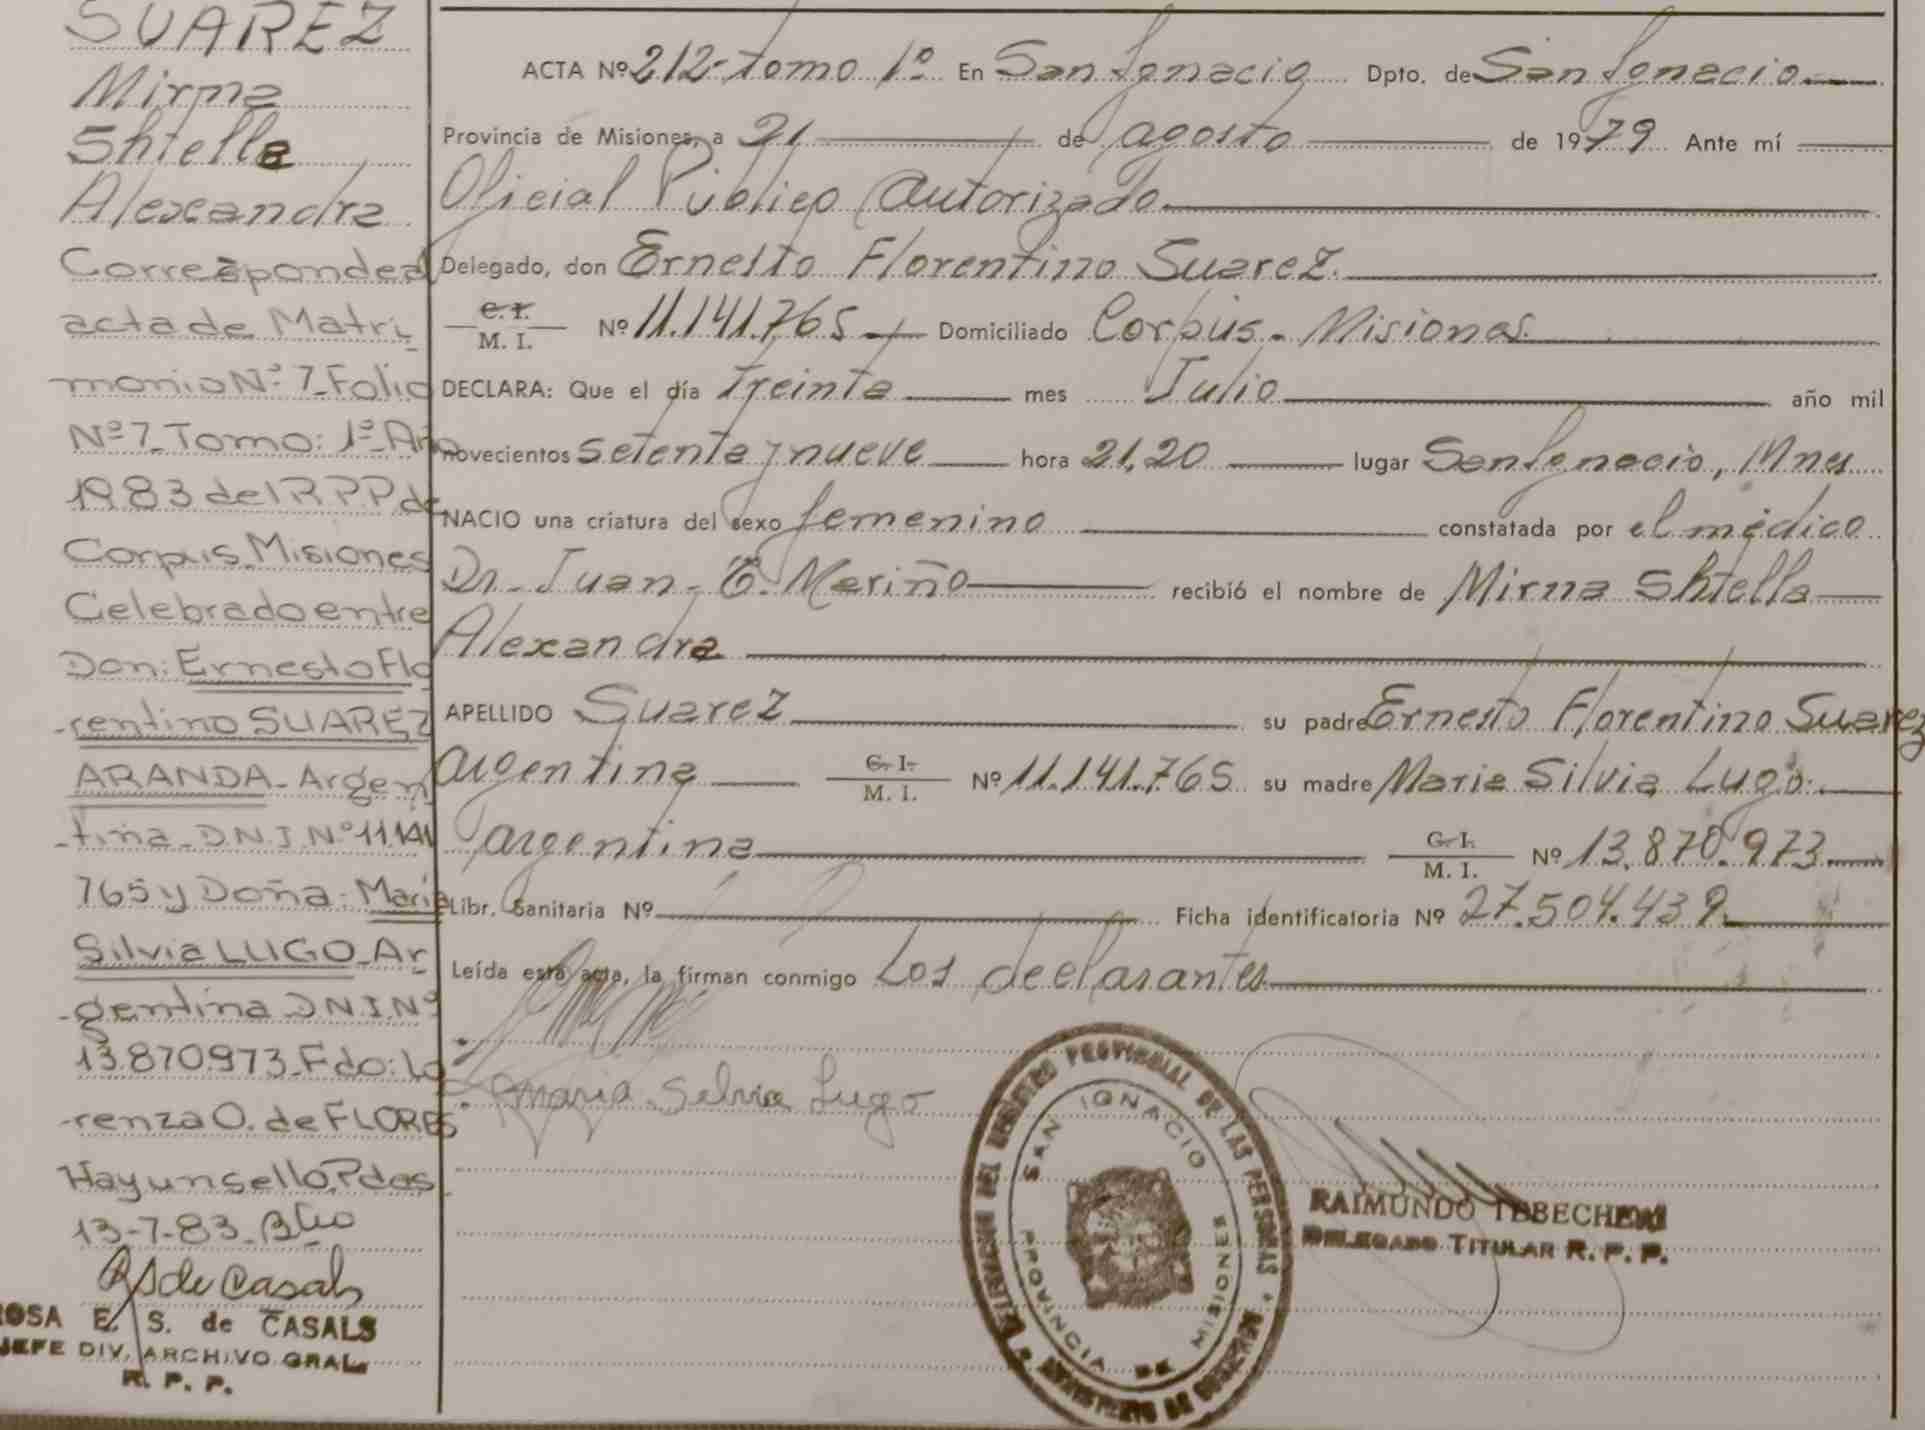 SUAREZ
Mirna
Shtella
Alexandra
Corresponde al
acta de Matri
monio Nº 7_Folio
Nº 7_Tomo: 1º_Año
1983 del R.P.P. de
Corpus_Misiones
Celebrado entre
Don: Ernesto Flo
-rentino SUAREZ
ARANDA_Argen
-tina_D.N.I. Nº 11.141
765 y Doña: Maria
Silvia LUGO_Ar
-gentina D.N.I. Nº
13.870.973_Fdo: Lo
-renza O. de FLORES
Hay un sello. Pdas
13-7-83_
RS de Casals
ROSA E. S. de CASALS
JEFE DIV. ARCHIVO GRAL.
R. P. P.
ACTA Nº 212- tomo 1º En San Ignacio Dpto. de San Ignacio
Provincia de Misiones, a 21 de agosto de 1979 Ante mí
Oficial Público Autorizado
Delegado, don Ernesto Florentino Suarez.
C. I.
M. I. Nº 11.141.765 Domiciliado Corpus - Misiones.
DECLARA: Que el día treinta mes Julio año mil
novecientos setenta y nueve hora 21,20 lugar San Ignacio, Mnes
NACIO una criatura del sexo femenino constatada por el médico
Dr. Juan - E. Meriño recibió el nombre de Mirna Shtella
Alexandra
APELLIDO Suarez su padre Ernesto Florentino Suarez
argentina C. I.
M. I. Nº 11.141.765 su madre Maria Silvia Lugo.
argentina C. I.
M. I. Nº 13.870.973
Libr. Sanitaria Nº Ficha identificatoria Nº 27.504.439.
Leída esta acta, la firman conmigo Los declarantes
Maria Silvia Lugo
SAN IGNACIO
PROVINCIA DE MISIONES
RAIMUNDO
DELEGADO TITULAR R. P. P.